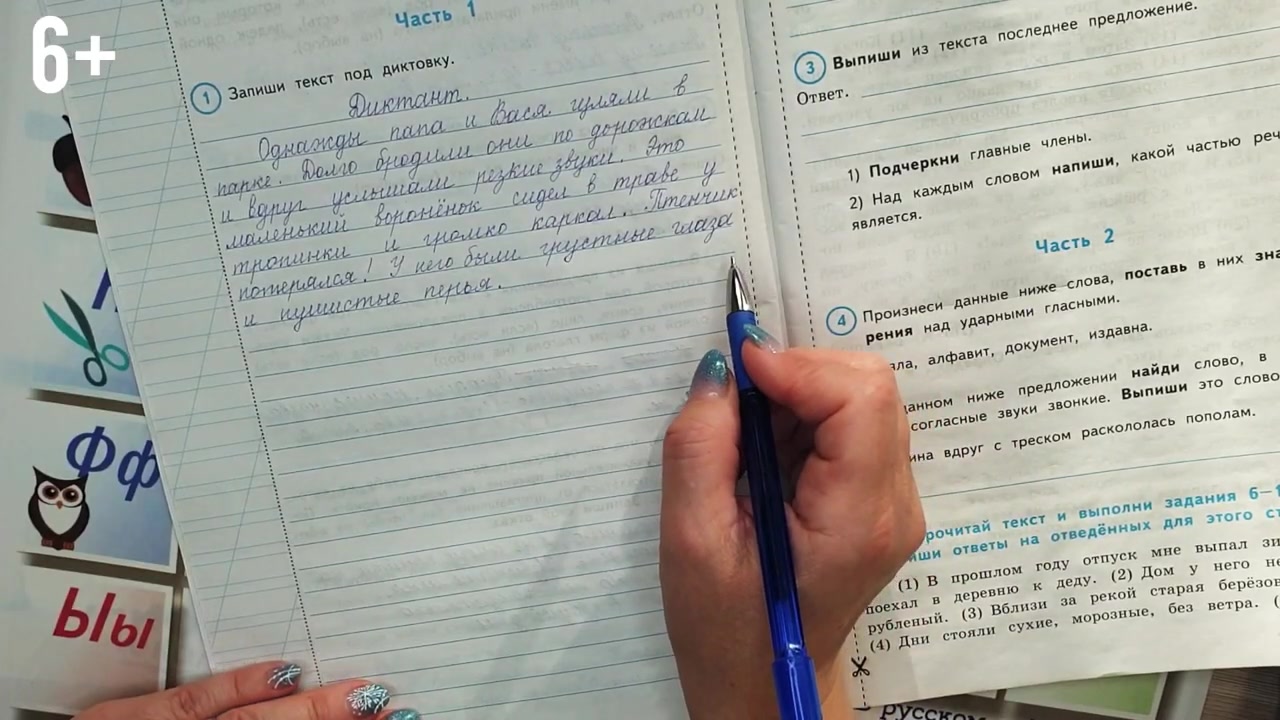 6+
Часть 1
1 Запиши текст под диктовку.
Диктант.
Однажды папа и Вася гуляли в
парке. Долго бродили они по дорожкам
и вдруг услышали резкие звуки. Это
маленький воронёнок сидел в траве у
тропинки и громко каркал. Птенчик
потерялся! У него были грустные глаза
и пушистые перья.
3 Выпиши из текста последнее предложение.
Ответ.
1) Подчеркни главные члены.
2) Над каждым словом напиши, какой частью реч
является.
Часть 2
4 Произнеси данные ниже слова, поставь в них зна
рения над ударными гласными.
ала, алфавит, документ, издавна.
данном ниже предложении найди слово, в
согласные звуки звонкие. Выпиши это слово
ина вдруг с треском раскололась пополам.
рочитай текст и выполни задания 6–1
иши ответы на отведённых для этого ст
(1) В прошлом году отпуск мне выпал зи
поехал в деревню к деду. (2) Дом у него не
рубленый. (3) Вблизи за рекой старая берёзов
(4) Дни стояли сухие, морозные, без ветра. (
русском
Фф
Ыы